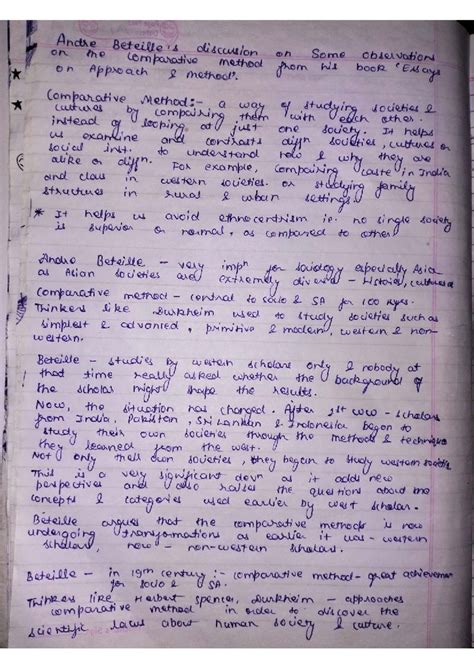 Andre Beteille's discussion on Some observations
on the Comparative method from his book 'Essays
on Approach & Method'.
Comparative Method:- a way of studying societies &
cultures by compairing them with each other
instead of looking at just one society. It helps
us examine and contrasts diffn societies, cultures or
social inst. to understand how & why they are
alike or diffn. For example, compairing caste in India
and class in western societies. or studying family
structures in rural & urban settings.
* It helps us avoid ethnocentrism ie. no single society
is superior or normal, as compared to other
Andre Beteille - very impn for sociology especially Asia
as Asian societies are extremely diverse - Histories, cultures
Comparative method - central to socio & SA for 100 years.
Thinkers like Durkheim used to study societies such as
simplest & advanced, primitive & modern, western & non-
western.
Beteille - studies by western scholars only & nobody at
that time really asked whether the background of
the scholar might shape the results.
Now, the situation has changed. After 2st WW - scholars
from India, Pakistan, SriLankan & Indonesia began to
study their own societies through the methods & techniques
they learned from the west.
Not only their own societies, they began to study western societies
This is a very significant devn as it adds new
perspectives and also raised the questions about the
concepts & categories used earlier by west scholar.
Béteille argues that the comparative methods is now
undergoing transformations as earlier it was - western
scholars, now - non-western scholars.
Beteille - in 19th century :- comparative method - great achievement
for socio & SA.
Thinkers like Herbert Spencer, Durkheim - approaches
comparative method in order to discover the
scientific laws about human society & culture.